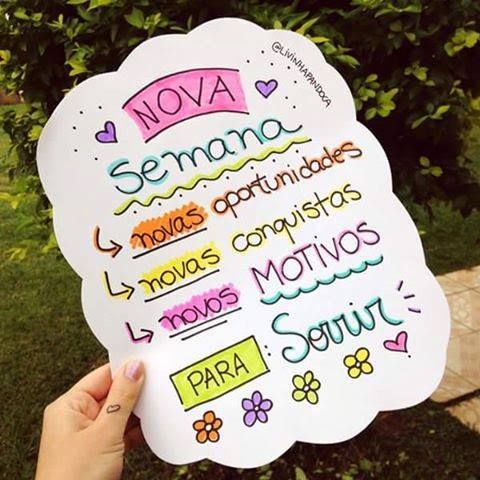 @LIVINHAPANDOCA
NOVA
semana
↳ novas oportunidades
↳ novas conquistas
↳ novos MOTIVOS
PARA: Sorrir